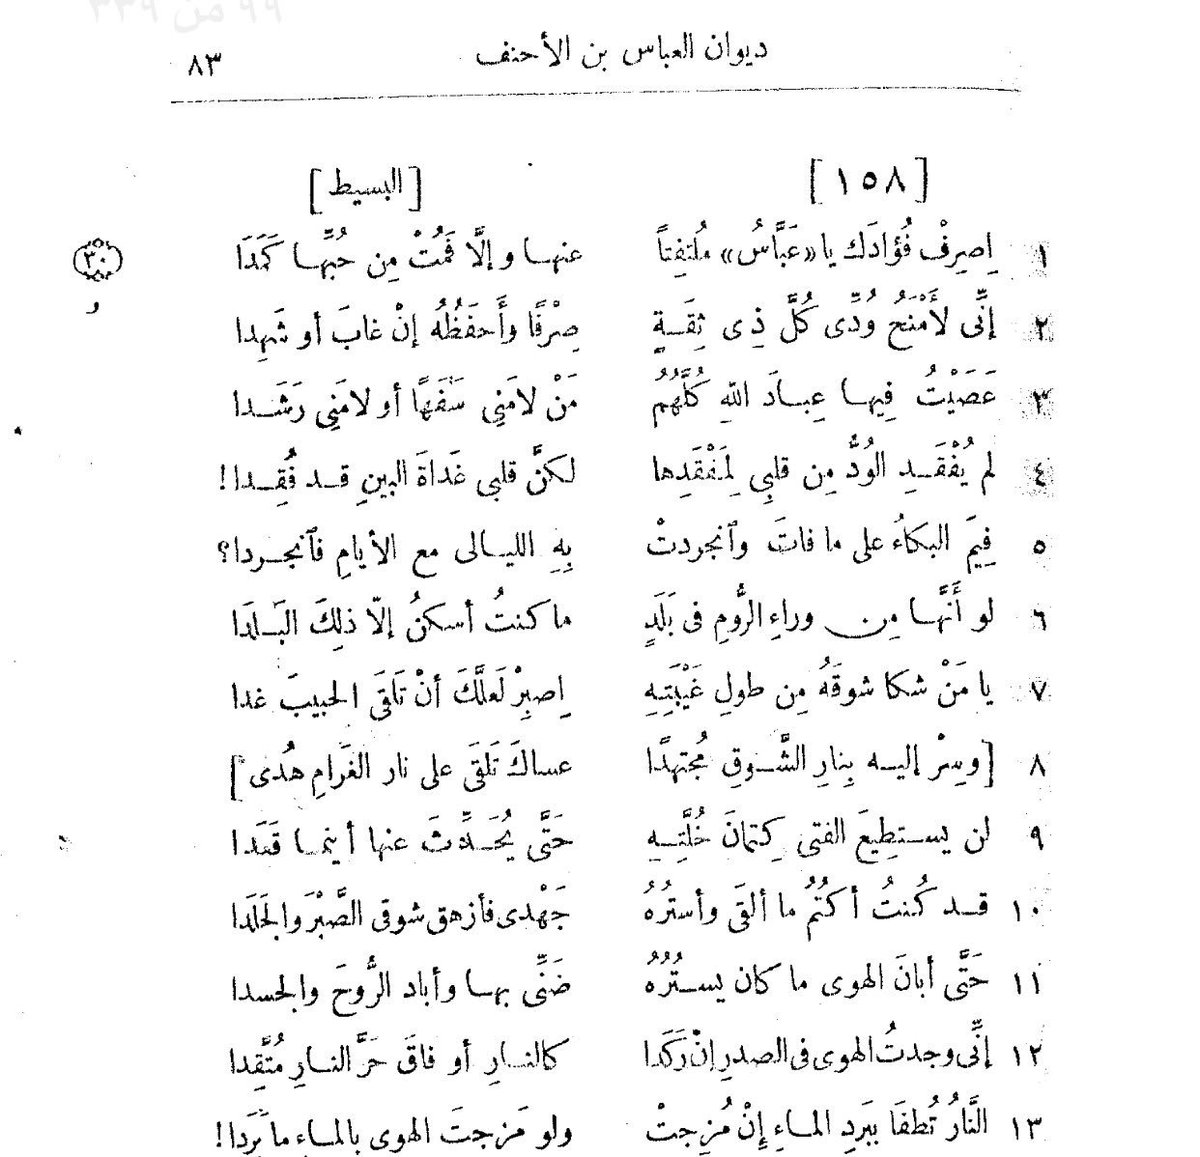 ٩٩ من ٣٣٩
ديوان العباس بن الأحنف ٨٣
[١٥٨] [البسيط]
١ اِصرِفْ فُؤادَك يا «عَبَّاسُ» مُلتفِتاً عنهـا و إلَّا فَمُتْ مِن حُبِّهـا كَمَدَا
٣٠
و
٢ إنِّى لأَمْنَحُ وُدِّى كُلَّ ذِى ثِقَـةٍ صِرْفًا وأَحفَظُهُ إنْ غابَ أو شَهِدا
٣ عَصَيْتُ فِيهـا عِبـادَ اللهِ كُلَّهُمُ مَنْ لامَنِى سَفَهًا أو لامَنِى رَشَـدا
٤ لم يُفْقَـدِ الوُدُّ مِن قلبِى لِمَفْقَدِها لكنَّ قلبى غَداةَ البينِ قـد فُقِـدا!
٥ فِيمَ البكاءُ على ما فاتَ وٱنجردتْ بِهِ الليـالى مع الأيامِ فٱنجـردا؟
٦ لو أَنَّهـا مِن وراءِ الرُّومِ فى بَلَدٍ ما كنتُ أسكنُ إلّا ذلِكَ البَـلدَا
٧ يا مَنْ شكا شوقَهُ مِن طولِ غَيْبَتِهِ اِصبِرْ لَعلَّكَ أنْ تَلقَى الحبيبَ غدا
٨ [وسِرْ إليـه بِنارِ الشَّـوقِ مُجتهدًا عساكَ تَلقَى على نار الغَرامِ هُدى]
٩ لن يسـتطِيعَ الفتى كِتمانَ خُلَّتِـهِ حَتَّى يُحَـدِّثَ عنها أينمـا قَعَدَا
١٠ قـد كُنتُ أكتُمُ ما ألقَى وأستُرُهُ جَهْدى فأزهق شوقى الصَّبْرَ والجَلَدَا
١١ حَتَّى أبانَ الهوى ما كان يسـتُرُهُ ضَنًّى بهـا وأباد الرُّوحَ والجسدا
١٢ إنِّى وجدتُ الهوى فى الصدرِ إنْ رَكَدا كالنـارِ أو فاقَ حَرَّ النـارِ مُتَّقِدا
١٣ النَّارُ تُطفَا بِبَردِ المـاءِ إنْ مُزِجتْ ولو مَزجتَ الهوى بالمـاء ما بَرَدا!